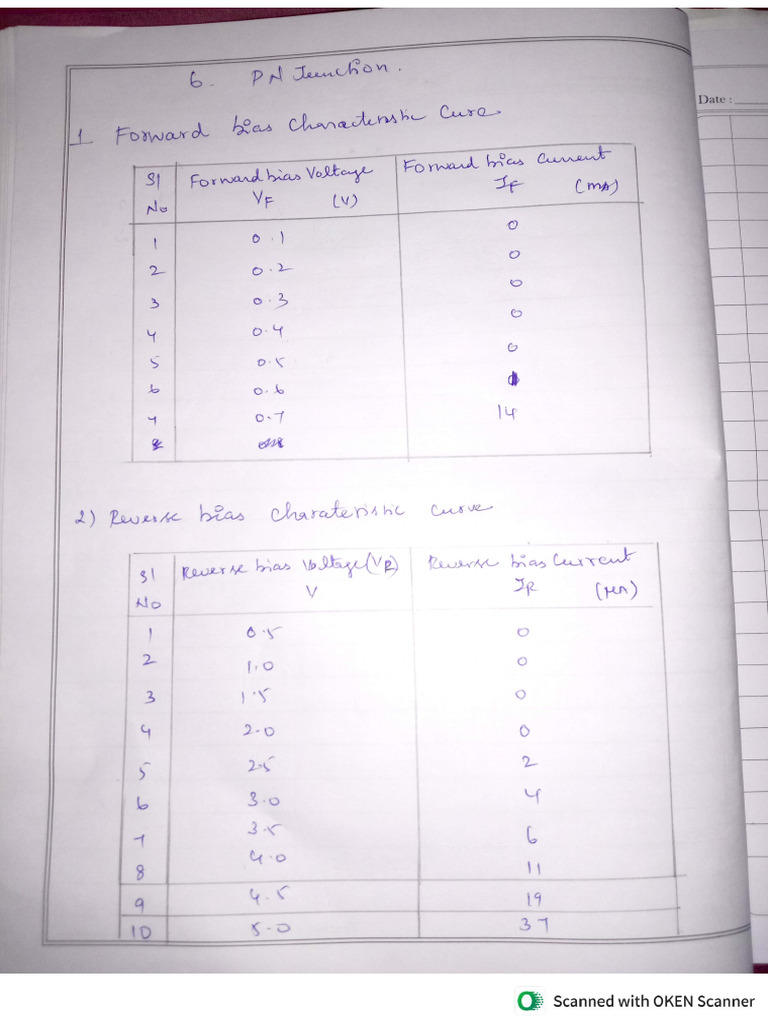 6. PN Junction.
Date :
1 Forward bias Characteristic Curve
Sl No Forward bias Voltage VF (V) Forward bias Current IF (mA)
1 0.1 0
2 0.2 0
3 0.3 0
4 0.4 0
5 0.5 0
6 0.6
7 0.7 14
2) Reverse bias charateristic curve
Sl No Reverse bias Voltage (VR) V Reverse bias Current IR (μA)
1 0.5 0
2 1.0 0
3 1.5 0
4 2.0 0
5 2.5 2
6 3.0 4
7 3.5 6
8 4.0 11
9 4.5 19
10 5.0 37
Scanned with OKEN Scanner